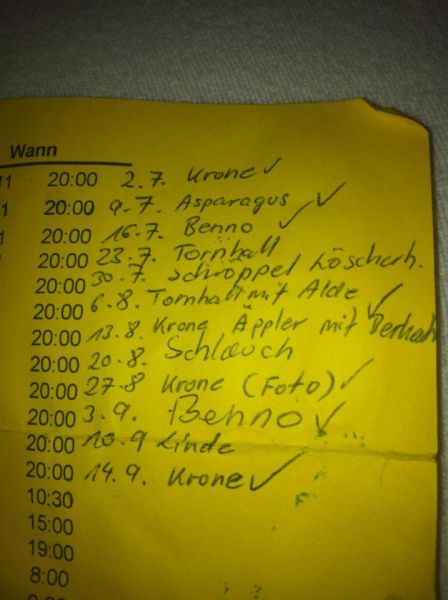 Wann
11 20:00 2.7. Krone ✓
1 20:00 9.7. Asparagus ✓
1 20:00 16.7. Benno ✓
20:00 23.7. Tornhall
20:00 30.7. Schroppel Löscherh.
20:00 6.8. Tornhall mit Alde ✓
20:00 13.8. Krone Appler mit
20:00 20.8. Schlauch
20:00 27.8 Krone (Foto) ✓
20:00 3.9. Benno ✓
20:00 10.9 Linde
20:00 14.9. Krone ✓
10:30
15:00
19:00
8:00